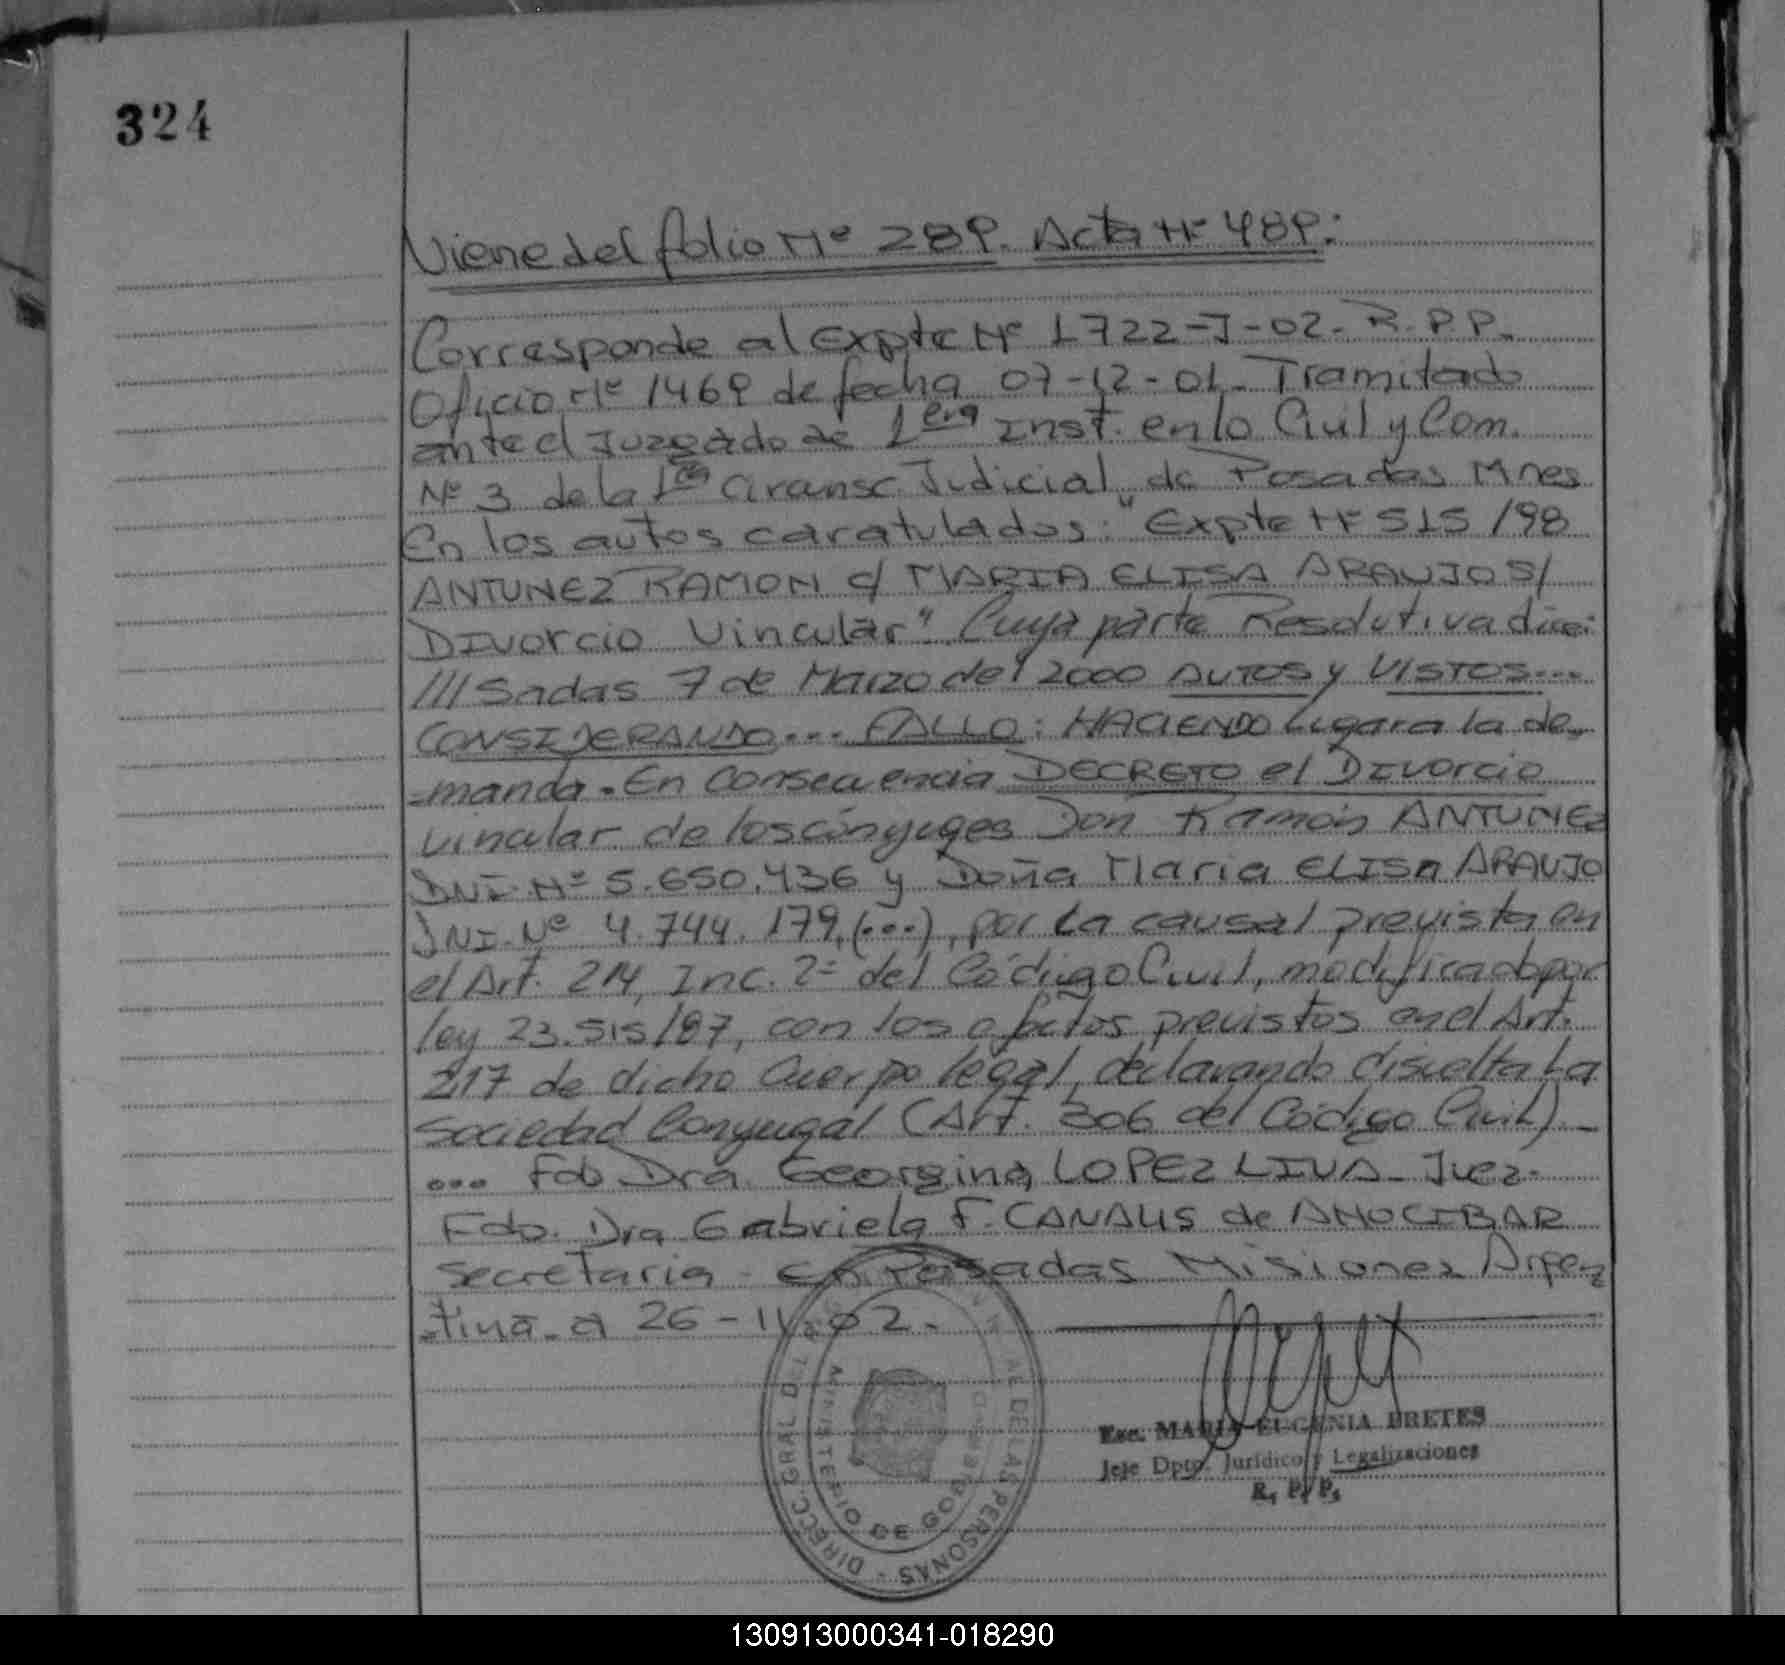 324
Viene del folio Nº 289. Acta Nº 489:
Corresponde al Expte Nº 1722-J-02. R.P.P.
Oficio Nº 1469 de fecha 07-12-01. Tramitado
ante el Juzgado de 1era Inst. en lo Civil y Com.
Nº 3 de la 1ra Circunsc. Judicial de Posadas Mnes
En los autos caratulados: "Expte Nº 515/98
ANTUNEZ RAMON c/ MARIA ELISA ARAUJO S/
DIVORCIO Vincular". Cuya parte Resolutiva dice:
///Sadas 7 de Marzo del 2000 AUTOS y VISTOS...
CONSIDERANDO... FALLO: HACIENDO Lugar a la de-
-manda. En Consecuencia DECRETO el DIVORCIO
Vincular de los cónyuges Don Ramón ANTUNEZ
DNI. Nº 5.650.436 y Doña Maria ELISA ARAUJO
DNI. Nº 4.744.179, (...), por La causal prevista en
el Art. 214, Inc. 2º del Código Civil, modificado por
ley 23.515/87, con los efectos previstos en el Art.
217 de dicho Cuerpo legal, declarando disuelta La
Sociedad Conyugal (Art. 306 del Código Civil). -
... Fdo Dra. Georgina LOPEZ LIVA - Juez.
Fdo. Dra Gabriela F. CANALIS de AMOCIBAR
Secretaria - En Posadas Misiones Argen
-tina - a 26-11-02.-
Esc. MARIA EUGENIA BRETES
Jefe Dpto. Jurídico y Legalizaciones
R. P. P.
DIRECC. GRAL DE LAS PERSONAS
MINISTERIO DE GOB
130913000341-018290